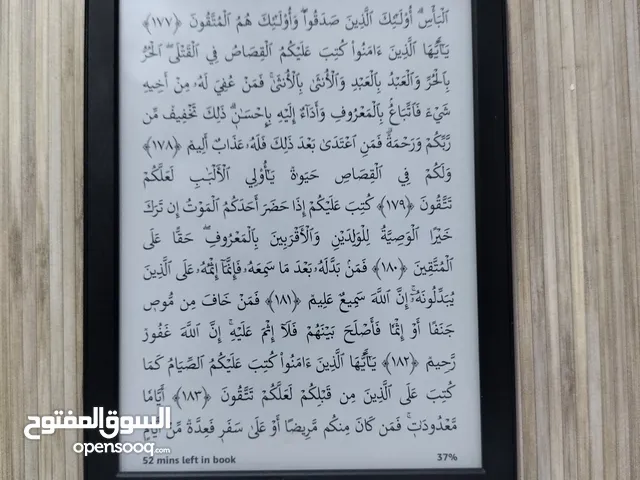 ٱلْبَأْسِ أُوْلَـٰٓئِكَ ٱلَّذِينَ صَدَقُواْ وَأُوْلَـٰٓئِكَ هُمُ ٱلْمُتَّقُونَ ﴿١٧٧﴾
يَـٰٓأَيُّهَا ٱلَّذِينَ ءَامَنُواْ كُتِبَ عَلَيْكُمُ ٱلْقِصَاصُ فِي ٱلْقَتْلَى ٱلْحُرُّ
بِٱلْحُرِّ وَٱلْعَبْدُ بِٱلْعَبْدِ وَٱلْأُنثَىٰ بِٱلْأُنثَىٰ فَمَنْ عُفِيَ لَهُۥ مِنْ أَخِيهِ
شَيْءٌ فَٱتِّبَاعُۢ بِٱلْمَعْرُوفِ وَأَدَآءٌ إِلَيْهِ بِإِحْسَـٰنٍ ذَٰلِكَ تَخْفِيفٌ مِّن
رَّبِّكُمْ وَرَحْمَةٌ فَمَنِ ٱعْتَدَىٰ بَعْدَ ذَٰلِكَ فَلَهُۥ عَذَابٌ أَلِيمٌ ﴿١٧٨﴾
وَلَكُمْ فِي ٱلْقِصَاصِ حَيَوٰةٌ يَـٰٓأُوْلِي ٱلْأَلْبَـٰبِ لَعَلَّكُمْ
تَتَّقُونَ ﴿١٧٩﴾ كُتِبَ عَلَيْكُمْ إِذَا حَضَرَ أَحَدَكُمُ ٱلْمَوْتُ إِن تَرَكَ
خَيْرًا ٱلْوَصِيَّةُ لِلْوَٰلِدَيْنِ وَٱلْأَقْرَبِينَ بِٱلْمَعْرُوفِ حَقًّا عَلَى
ٱلْمُتَّقِينَ ﴿١٨٠﴾ فَمَنۢ بَدَّلَهُۥ بَعْدَ مَا سَمِعَهُۥ فَإِنَّمَآ إِثْمُهُۥ عَلَى ٱلَّذِينَ
يُبَدِّلُونَهُۥٓ إِنَّ ٱللَّهَ سَمِيعٌ عَلِيمٌ ﴿١٨١﴾ فَمَنْ خَافَ مِن مُّوصٍ
جَنَفًا أَوْ إِثْمًا فَأَصْلَحَ بَيْنَهُمْ فَلَآ إِثْمَ عَلَيْهِ إِنَّ ٱللَّهَ غَفُورٌ
رَّحِيمٌ ﴿١٨٢﴾ يَـٰٓأَيُّهَا ٱلَّذِينَ ءَامَنُواْ كُتِبَ عَلَيْكُمُ ٱلصِّيَامُ كَمَا
كُتِبَ عَلَى ٱلَّذِينَ مِن قَبْلِكُمْ لَعَلَّكُمْ تَتَّقُونَ ﴿١٨٣﴾ أَيَّامًا
مَّعْدُودَٰتٍ فَمَن كَانَ مِنكُم مَّرِيضًا أَوْ عَلَىٰ سَفَرٍ فَعِدَّةٌ مِّنْ أَيَّامٍ
52 mins left in book 37%
السوق المفتوح
opensooq.com